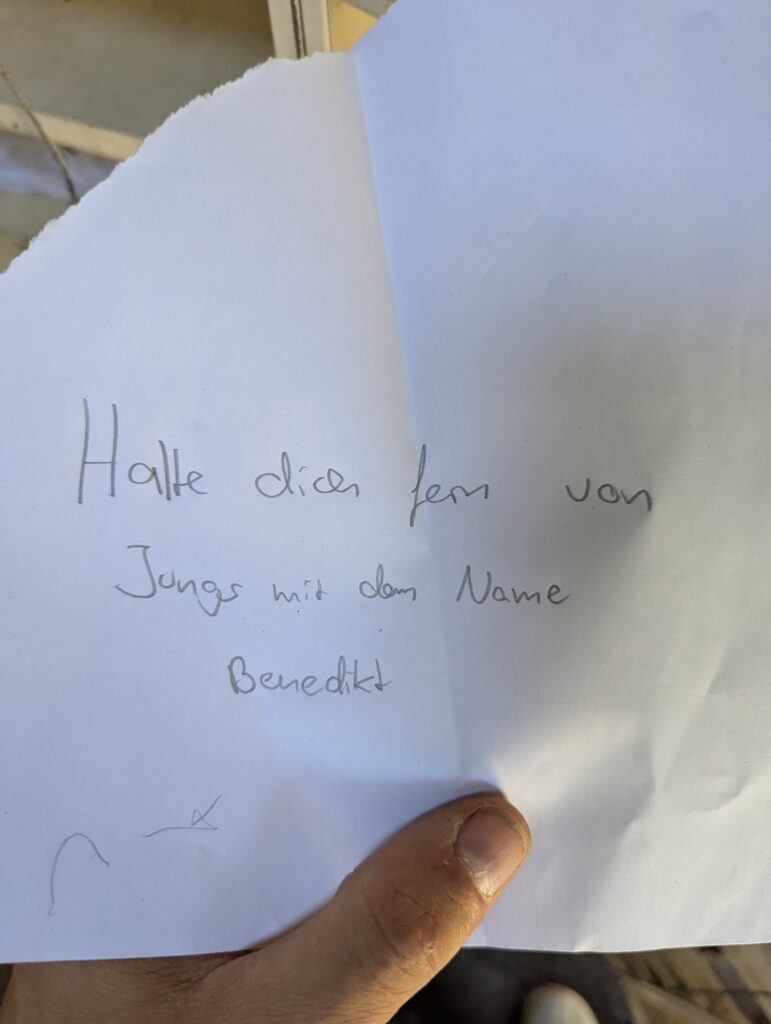 Halte dich fern von
Jungs mit dem Name
Benedikt